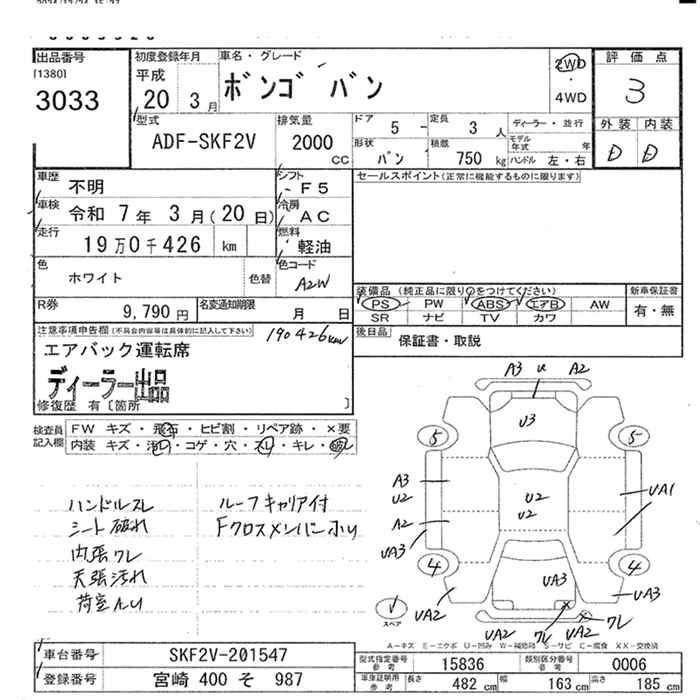 出品番号
[1380]
3033
初度登録年月
平成
20 3月
車名・グレード
ボンゴ バン
2WD
・
4WD
評価点
3
外装 内装
D D
型式
ADF-SKF2V
排気量
2000
cc
ドア
5 -
定員
3 人
ディーラー・並行
モデル年式 年
形状
バン
積載
750 kg
ハンドル 左・右
車歴
不明
シフト
- F5
セールスポイント(正常に機能するものに限ります)
車検
令和 7年 3月(20日)
冷房
AC
走行
19万0千426 km
燃料
軽油
色
ホワイト
色替
色コード
A2W
装備品 (純正品に限り○をつけてください)
PS PW ABS エアB AW
SR ナビ TV カワ
新車保証書
有・無
R券
9,790円
名変通知期限
月 日
後日品
保証書・取説
注意事項申告欄(不具合内容等は具体的に記入して下さい)
190426km
エアバック運転席
ディーラー出品
修復歴 有〔箇所 〕
検査員記入欄
FW キズ・飛石・ヒビ割・リペア跡・×要
内装 キズ・汚レ・コゲ・穴・スレ・キレ・破レ
ハンドルスレ
シート破れ
内張ワレ
天張汚れ
荷室AU
ルーフキャリア付
Fクロスメンバー小U
A3 U A2
U3
5 5
A3
U2
A2
UA3
U2
U2
UA1
4 4
UA3
UA3
UA2
スペア
UA2 ワレ UA2 ワレ
A－キズ E－エクボ U－凹み W－補修跡 S－サビ C－腐食 XX－交換済
車台番号
SKF2V-201547
登録番号
宮崎 400 そ 987
型式指定番号
参考
15836
類別区分番号
参考
0006
車庫証明用
参考
長さ
482 cm
幅
163 cm
高さ
185 cm